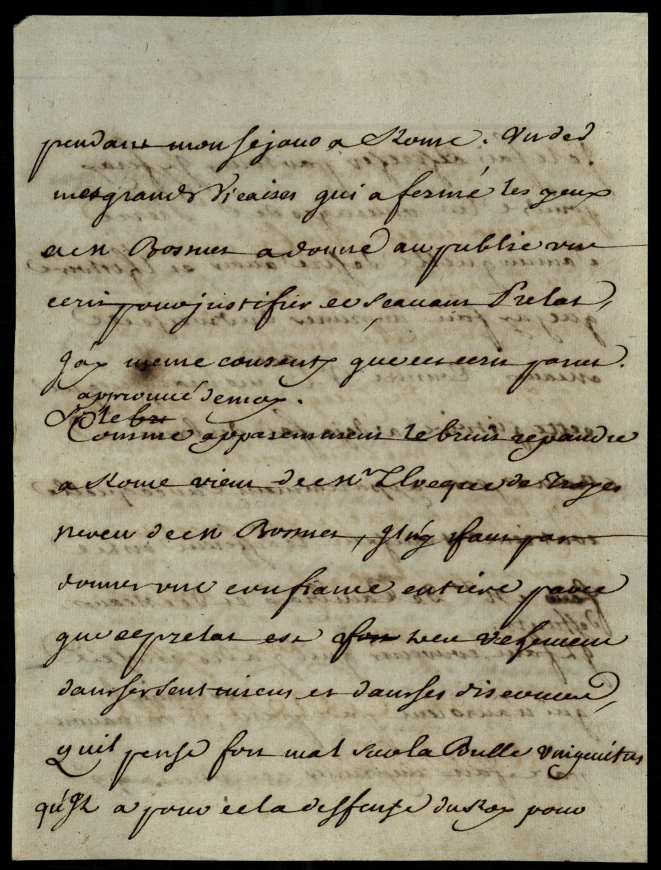 pendant mon sejour a Rome. Un des
mes grands Vicaires qui a fermé les yeux
a M Bossuet a donné au public un
ecrit pour justifier ce scavant Prelat,
j'ay meme consenty que cet ecrit parut
approuvé de moy.
Comme apparemment le bruit repandu
a Rome vient de Mr L'Eveque de Troyes
neveu de M Bossuet, il n'y faut pas
donner une confiance entiere parce
que ce prelat est fort vehement
dans ses sentimens et dans ses discours,
qu'il pense fort mal sur la Bulle Unigenitus
qu'il a pour cela deffense du Roy pour